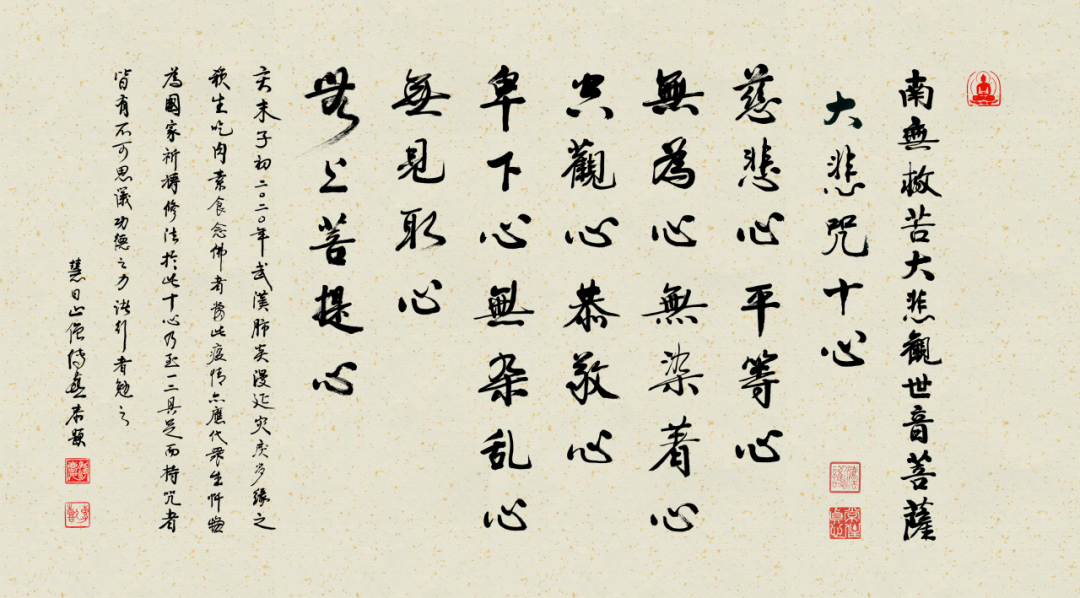 南無救苦大悲觀世音菩薩
大悲咒十心
慈悲心平等心
無為心無染著心
空觀心恭敬心
卑下心無杂乱心
無見取心
無上菩提心
亥末子初二〇二〇年武漢肺炎漫延灾疾多緣之
殺生吃肉素食念佛者當此疫情亦應代眾生忏悔
為國家祈禱修法於此十心乃至一二具足而持咒者
皆有不可思議功德之力諸行者勉之
慧日山僧傳喜敬題